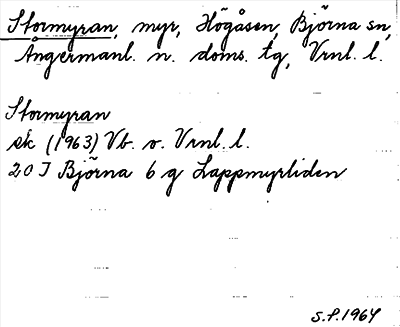 Stormyran, myr, Högåsen, Björna sn,
Ångermanl. n. doms. tg, Vrnl. l.
Stormyran
ek (1963) Vb. o. Vrnl. l.
20 I Björna 6 g Lappmyrliden
S.P. 1964